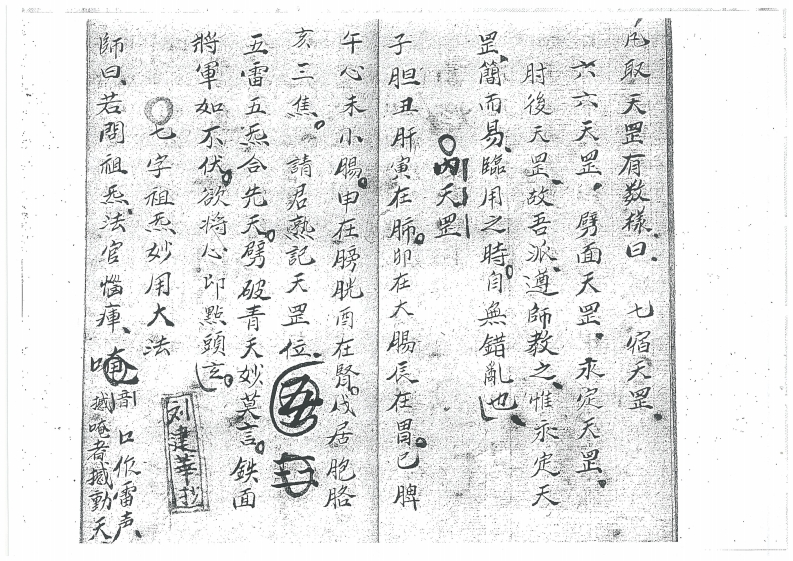 凡取天罡有数樣曰、七宿天罡、
六六天罡、劈面天罡、永定天罡、
肘後天罡、故吾派遵師教之、惟永定天
罡、簡而易、臨用之時、自無錯亂也、
内天罡
子胆丑肝寅在肺。卯在大腸辰在胃。巳脾
午心未小腸。申在膀胱酉在腎。戌居胞胳
亥三焦。請君熟記天罡位。
五雷五炁合先天。劈破青天妙莫言。鉄面
將軍如不伏。欲将心印點頭玄。
七字祖炁妙用大法
列建華抄
師曰、若問祖炁、法官惱庫、唵音口作雷声、
撼唵者撼動天